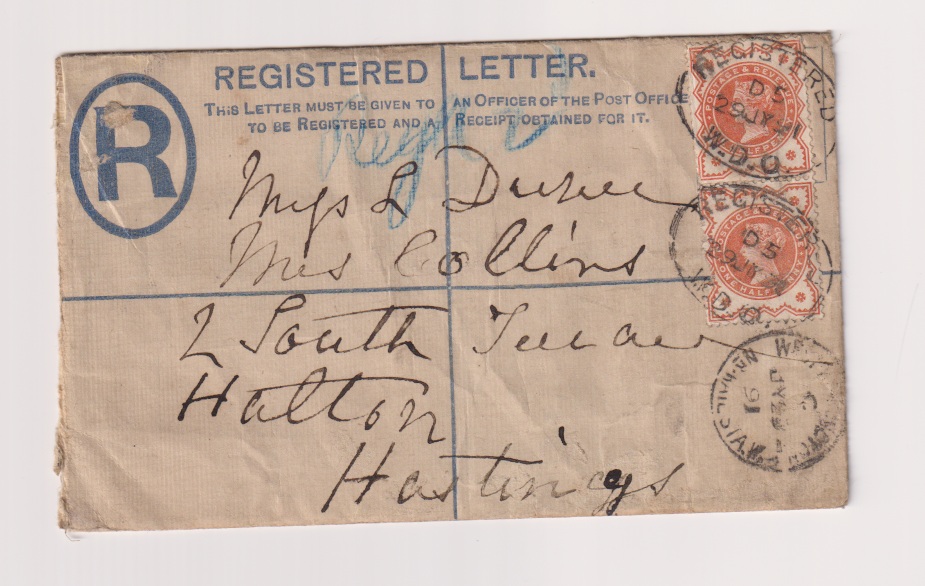 REGISTERED LETTER.
THIS LETTER MUST BE GIVEN TO AN OFFICER OF THE POST OFFICE
TO BE REGISTERED AND A RECEIPT OBTAINED FOR IT.
R
Regd
REGISTERED
D5
29 JY 91
W.D.O.
POSTAGE & REVENUE
HALFPENNY
REGISTERED
D5
29 JY
W.D.O.
POSTAGE
ONE HALFPENNY
Miss L
Mrs Collins
2 South Terrace
Halton
Hastings